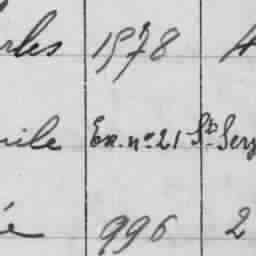 rles 1578 4
mile Ex. nº 21 St. Serg
é 996 2